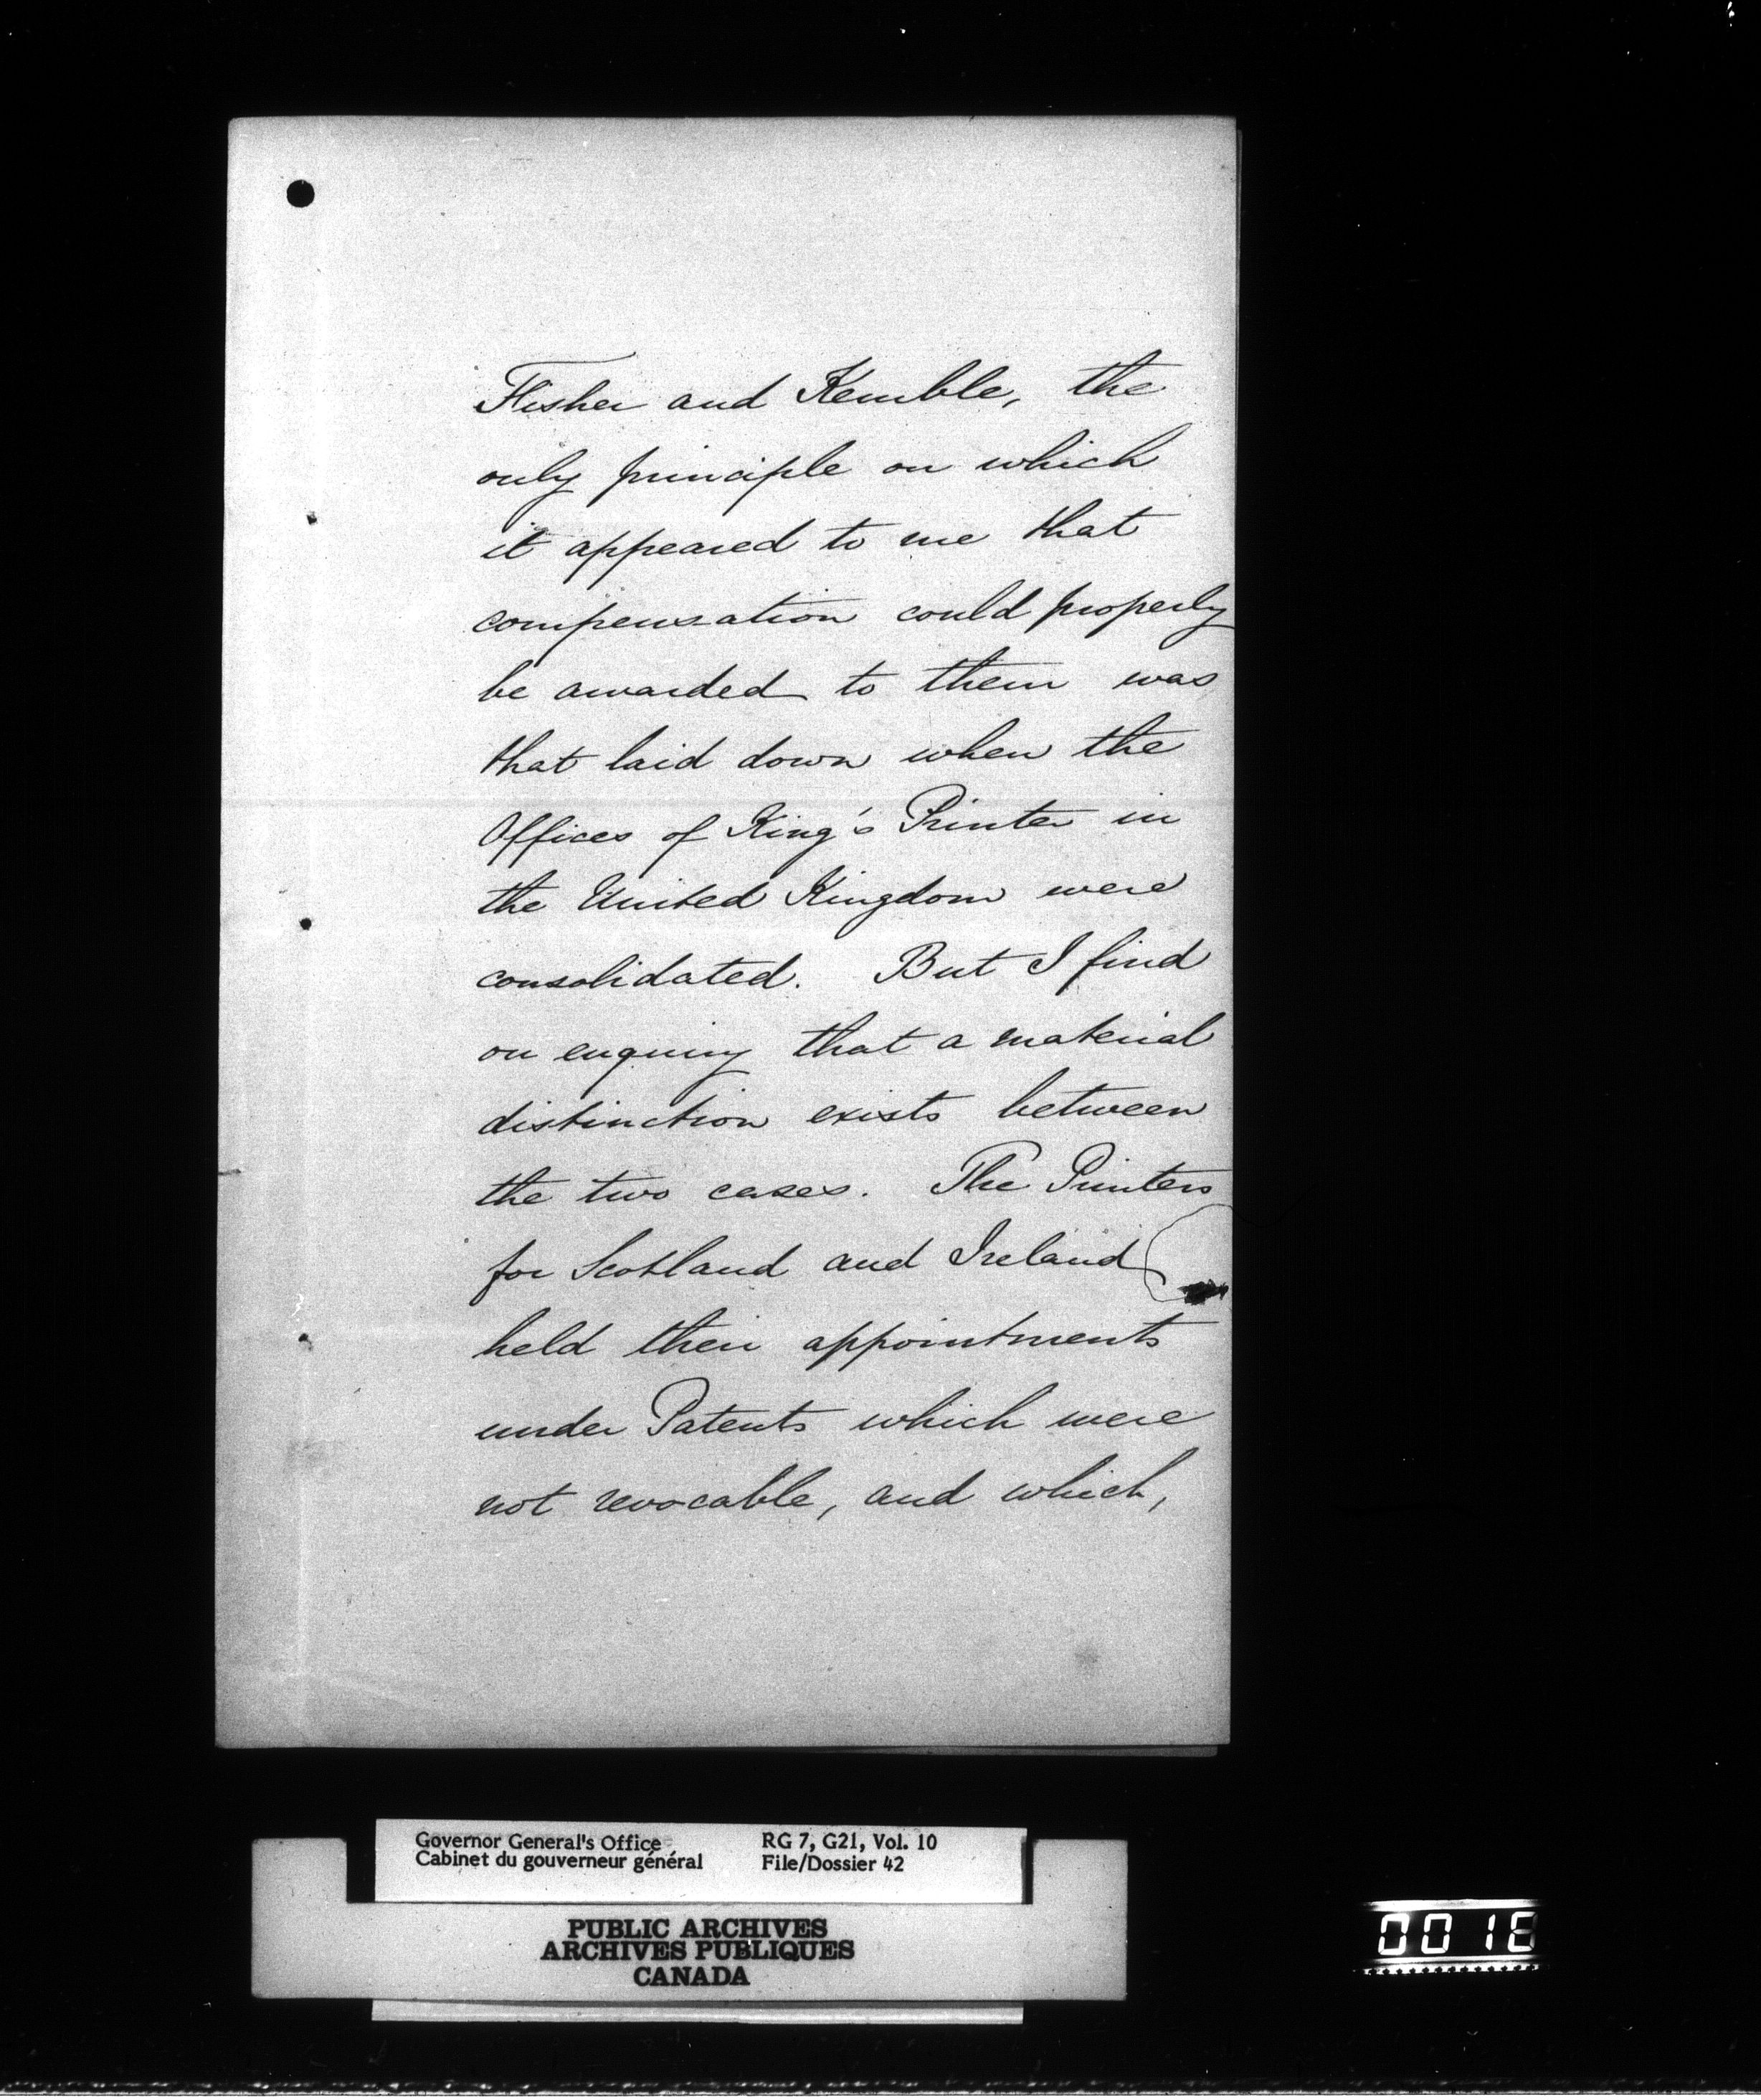 Fisher and Kemble, the
only principle on which
it appeared to me that
compensation could properly
be awarded to them was
that laid down when the
Offices of King's Printer in
the United Kingdom were
consolidated. But I find
on enquiry that a material
distinction exists between
the two cases. The Printers
for Scotland and Ireland
held their appointments
under Patents which were
not revocable, and which,
Governor General's Office RG 7, G21, Vol. 10
Cabinet du gouverneur général File/Dossier 42
PUBLIC ARCHIVES
ARCHIVES PUBLIQUES
CANADA